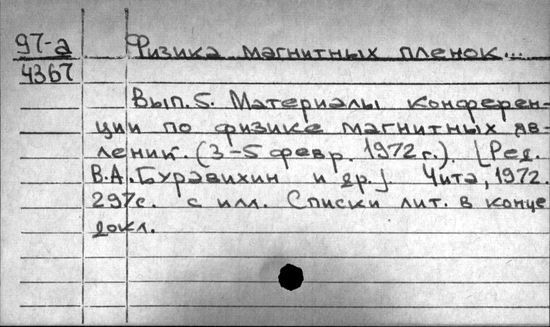 97-а Физика магнитных пленок...
4367
Вып. 5. Материалы конферен-
ции по физике магнитных яв-
лений. (3-5 февр. 1972 г.). [Ред.
В.А. Буравихин и др.] Чита, 1972.
297с. с илл. Списки лит. в конце
докл.